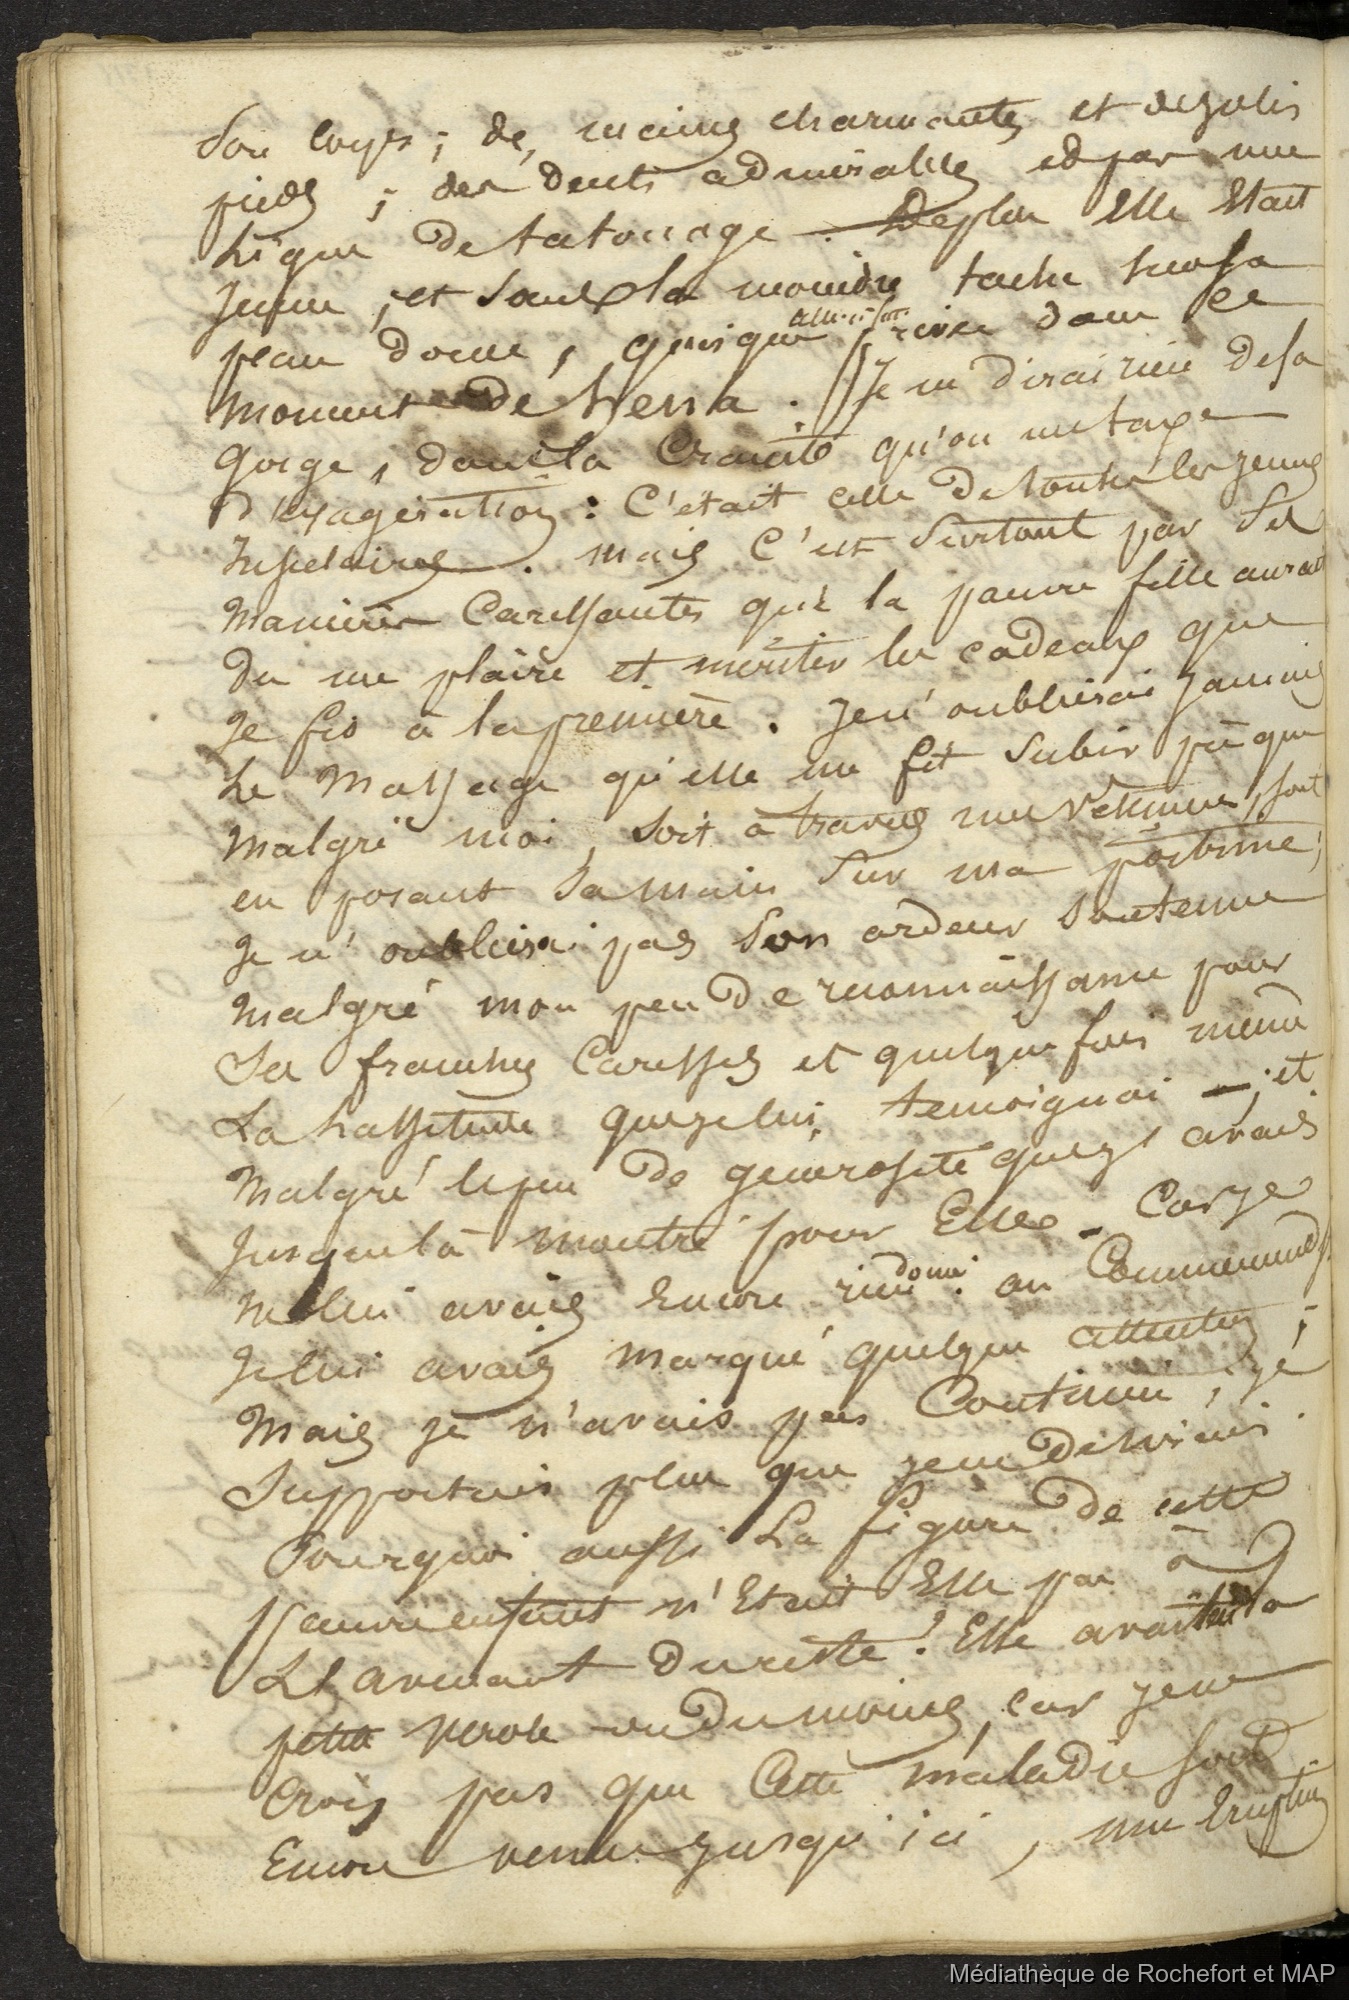 son corps ; des mains charmantes et de jolis
pieds ; des dents admirables et pas une
ligne de tatouage . De plus Elle Etait
jeune ; et sans la moindre tache sur sa
peau douce , quoique dans ce
moment de herra . Je ne dirai rien de sa
gorge , dans la crainte qu'on me taxe
d'exageration : C'était celle de toutes les jeunes
Insulaires . mais C'est surtout par ses
manières Caressantes que la pauvre fille aurait
du me plaire et meriter les cadeaux que
je fis à la première . Je n'oublierai jamais
le Massage qu'elle me fit subir presque
malgré moi , soit à travers mes vêtemens , soit
en posant sa main sur ma poitrine ;
Je n'oublierai pas son ardeur soutenue
malgré mon peu de reconnaissance pour
ses franches Caresses et quelque fois même
La Lassitude que je lui temoignai — ; et
Malgré le peu de generosité que j'avais
jusque là montré pour Elle - Car je
ne lui avais Encore rien donné . au Commencemt
je lui avais marqué quelques attentions ;
Mais je n'avais pas Continué , je
Supportais plus que je ne désirais .
Pourquoi aussi La figure de cette
pauvre enfant n'Etait Elle pas à
L'avenant du reste ? Elle avait eu la
petite verole ou du moins , car je ne
Crois pas que Cette maladie soit
Encore venue jusqu'ici , une Eruption
Médiathèque de Rochefort et MAP